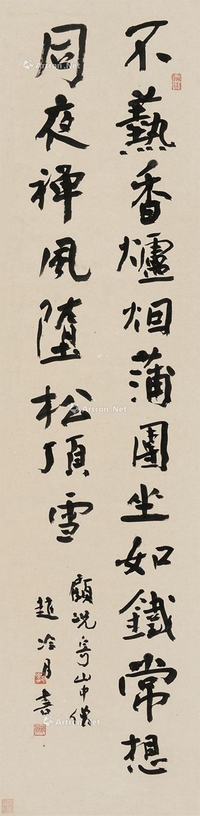 不爇香爐烟蒲團坐如鐵常想
同夜禪風墮松頂雪
顧況寄山中僧
趙冷月書
Artron.Net